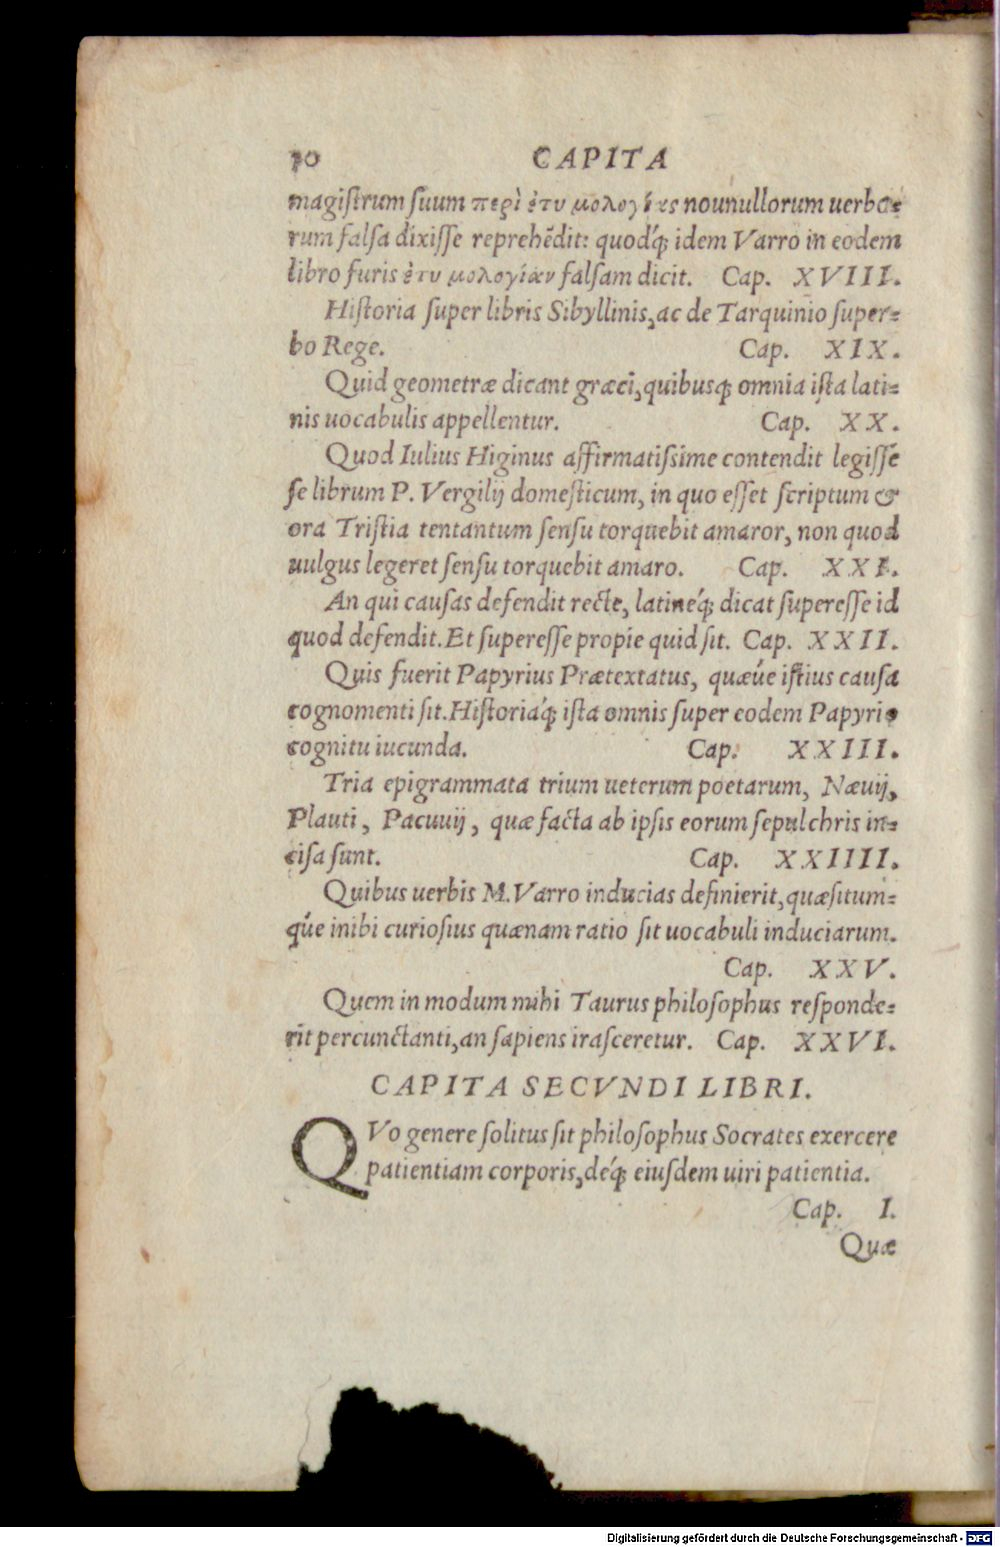 10 CAPITA
magiſtrum ſuum περὶ ἐτυ μολογίας nounullorum uerbo-
rum falſa dixiſſe reprehẽdit: quodq́; idem Varro in eodem
libro furis ἐτυ μολογίαν falſam dicit. Cap. XVIII.
Hiſtoria ſuper libris Sibyllinis, ac de Tarquinio ſuper-
bo Rege. Cap. XIX.
Quid geometræ dicant græci, quibusq; omnia iſta lati-
nis uocabulis appellentur. Cap. XX.
Quod Iulius Higinus affirmatiſsime contendit legiſſe
ſe librum P. Vergilij domeſticum, in quo eſſet ſcriptum &
ora Triſtia tentantum ſenſu torquebit amaror, non quod
uulgus legeret ſenſu torquebit amaro. Cap. XXI.
An qui cauſas defendit recte, latineq́; dicat ſupereſſe id
quod defendit. Et ſupereſſe propie quid ſit. Cap. XXII.
Quis fuerit Papyrius Prætextatus, quæúe iſtius cauſa
cognomenti ſit. Hiſtoriaq́; iſta omnis ſuper eodem Papyrio
cognitu iucunda. Cap. XXIII.
Tria epigrammata trium ueterum poetarum, Næuij,
Plauti, Pacuuij, quæ facta ab ipſis eorum ſepulchris in-
ciſa ſunt. Cap. XXIIII.
Quibus uerbis M. Varro inducias definierit, quæſitum-
q́ue inibi curioſius quænam ratio ſit uocabuli induciarum.
Cap. XXV.
Quem in modum mihi Taurus philoſophus reſponde-
rit percunctanti, an ſapiens iraſceretur. Cap. XXVI.
CAPITA SECVNDI LIBRI.
QVo genere ſolitus ſit philoſophus Socrates exercere
patientiam corporis, deq́; eiuſdem uiri patientia.
Cap. I.
Quæ
Digitalisierung gefördert durch die Deutsche Forschungsgemeinschaft - DFG